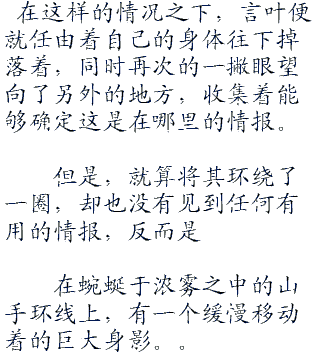 在这样的情况之下，言叶便
就任由着自己的身体往下掉
落着，同时再次的一撇眼望
向了另外的地方，收集着能
够确定这是在哪里的情报。
但是，就算将其环绕了
一圈，却也没有见到任何有
用的情报，反而是
在蜿蜒于浓雾之中的山
手环线上，有一个缓慢移动
着的巨大身影。。